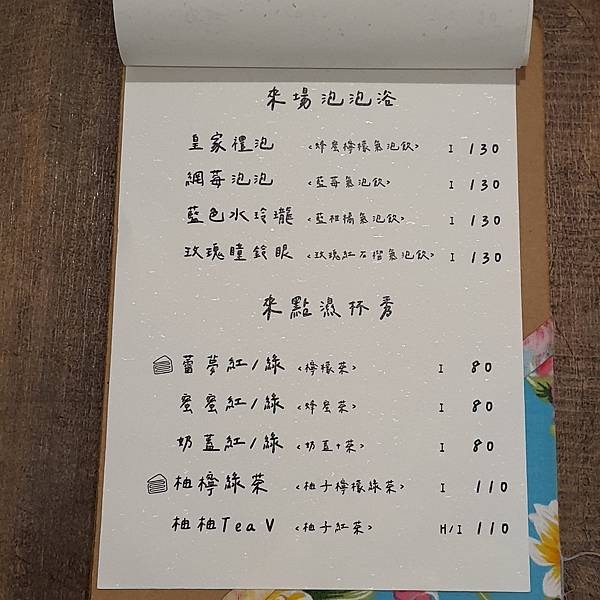 來場泡泡浴
皇家禮泡 <蜂蜜檸檬氣泡飲> I 130
網莓泡泡 <藍莓氣泡飲> I 130
藍色水玲瓏 <藍柑橘氣泡飲> I 130
玫瑰瞳鈴眼 <玫瑰紅石榴氣泡飲> I 130
來點濕杯秀
蕾夢紅/綠 <檸檬茶> I 80
蜜蜜紅/綠 <蜂蜜茶> I 80
奶蓋紅/綠 <奶蓋+茶> I 80
柚檸綠茶 <柚子檸檬綠茶> I 110
柚柚TeaV <柚子紅茶> H/I 110